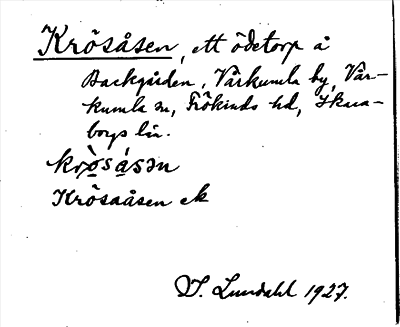 Krösåsen, ett ödetorp å
Backgården, Vårkumla by, Vår-
kumla sn, Frökinds hd, Skara-
borgs län.
krò̤sá̤sən
Krösaåsen ek
S. Lundahl 1927.